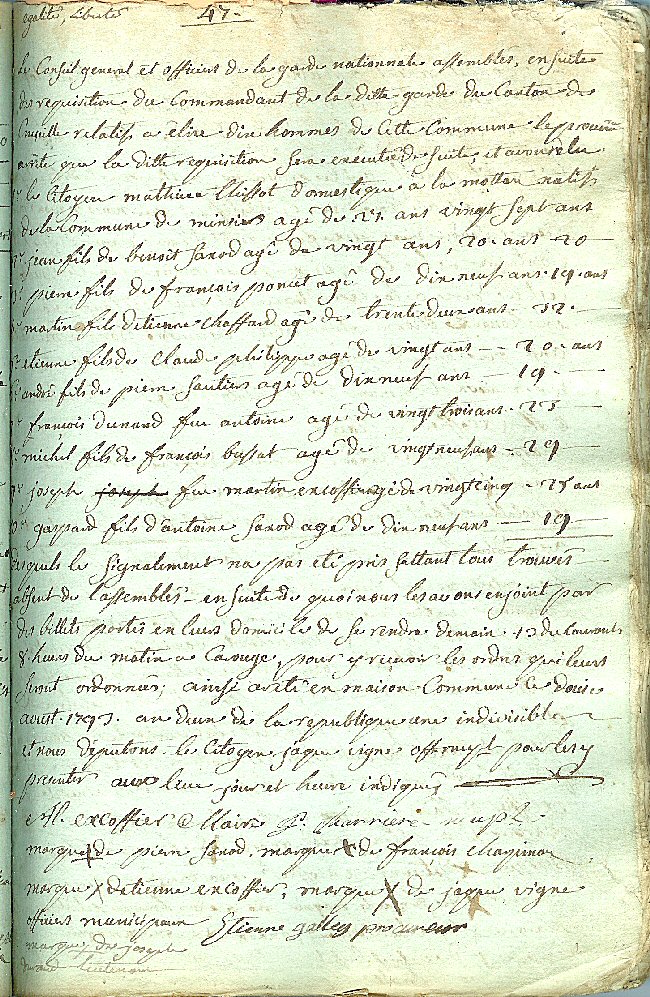 égalité, liberté 47.
le Conseil general et officiers de la garde nationnale assemblés, ensuite
de requisition du Commandant de la ditte garde du Canton de
relatifs a élire dix hommes de Cette Commune le procureur
arrête que la ditte requisition sera executée de suite, et avons élu
le Citoyen mathieu Clissot Domestique à la mottaz natifs
de la Commune de minsier agé de 27 ans vingt sept ans
jean fils de benoit Sarod agé de vingt ans, 20. ans 20
pierre fils de françois poncet agé de dix neuf ans 19 ans
matin fils detienne Chaffard agé de trente deux ans 32.
etienne fils de Claude philippe agé de vingt ans 20. ans
andré fils de pierre Sautiers agé de dix neuf ans 19
françois dunand feu antoine agé de vingt trois ans 23
michel fils de françois bussat agé de vingt neuf ans 29
joseph joseph feu martin excoffier agé de vingt cinq 25 ans
gaspard fils d'antoine Sarod agé de dix neuf ans 19
desquels le Signalement na pas eté pris settant tous trouvés
absent de l'assemblés ensuite de quoi nous les avons enjoint par
des billets portés en leurs domicile de se rendre demain 13 du Courant
8 heures du matin a Caruge, pour y recevoir les ordres qui leurs
seront ordonnées; ainsi arété en maison Commune Ce douze
aoust 1793. an deux de la republique une indivisible
et nous députons le Citoyen jaque vigne pour les y
presenter aux lieu jour et heure indiqués
excoffier Maire P. Charriere
marque de pierre Sarod. marque x de françois Chapuisat
marque x detienne excoffier, marque x de jaque vigne
officiers municipaux Etienne gallay procureur
marque de joseph
dunand lieutenant